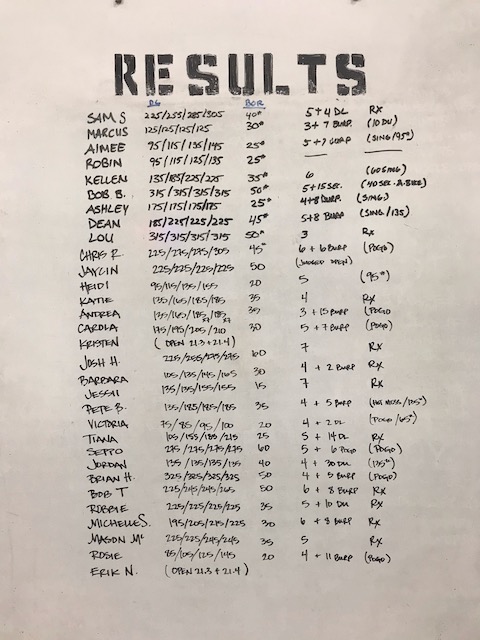 RESULTS
DL BOR
SAM S 225/255/285/305 40# 5+4 DL RX
MARCUS 125/125/125/125 30# 3+7 BURP. (10 DU)
AIMEE 95/115/135/145 25# 5+7 BURP (SING/95#)
ROBIN 95/115/125/135 25#
KELLEN 135/185/225/225 35# 6 (60 SING)
BOB B. 315/315/315/315 50# 5+15 SEC. (40 SEC. A-BIKE)
ASHLEY 175/175/175/175 25# 4+8 BURP. (SING.)
DEAN 185/225/225/225 45# 5+8 BURP (SING/135)
LOU 315/315/315/315 50# 3 RX
CHRIS R. 225/275/275/305 45# 6+6 BURP (POGO)
JAYLIN 225/225/225/225 50 (JUDGED OPEN)
HEIDI 95/115/135/155 20 5 (95#)
KATIE 135/165/185/185 35 4 RX
ANDREA 135/165/185/185 35 3+15 BURP (POGO
CARLA 175/195/205/210 30 5+7 BURP (POGO)
KRISTEN (OPEN 21.3+21.4)
JOSH H. 225/255/275/275 60 7 RX
BARBARA 105/135/145/165 30 4+2 BURP RX
JESSII 135/135/155/155 15 7 RX
PETE B. 135/185/185/185 35 4+5 BURP (/135#)
VICTORIA 75/85/95/100 20 4+2 DL (POGO/65#)
TIANA 105/155/185/215 25 5+14 DL RX
SEPPO 275/275/275/275 60 5+6 POGO (POGO)
JORDAN 135/135/135/135 40 4+30 DU (135#)
BRIAN H. 325/325/325/325 50 4+5 BURP (POGO)
BOB T 225/245/245/265 50 6+8 BURP RX
ROBBIE 225/225/225/225 35 5+10 DU RX
MICHELLE S. 195/205/215/225 30 6+8 BURP RX
MASON Mc 225/225/245/245 35 5 RX
ROSIE 85/105/125/145 20 4+11 BURP (POGO)
ERIK N. (OPEN 21.3+21.4)